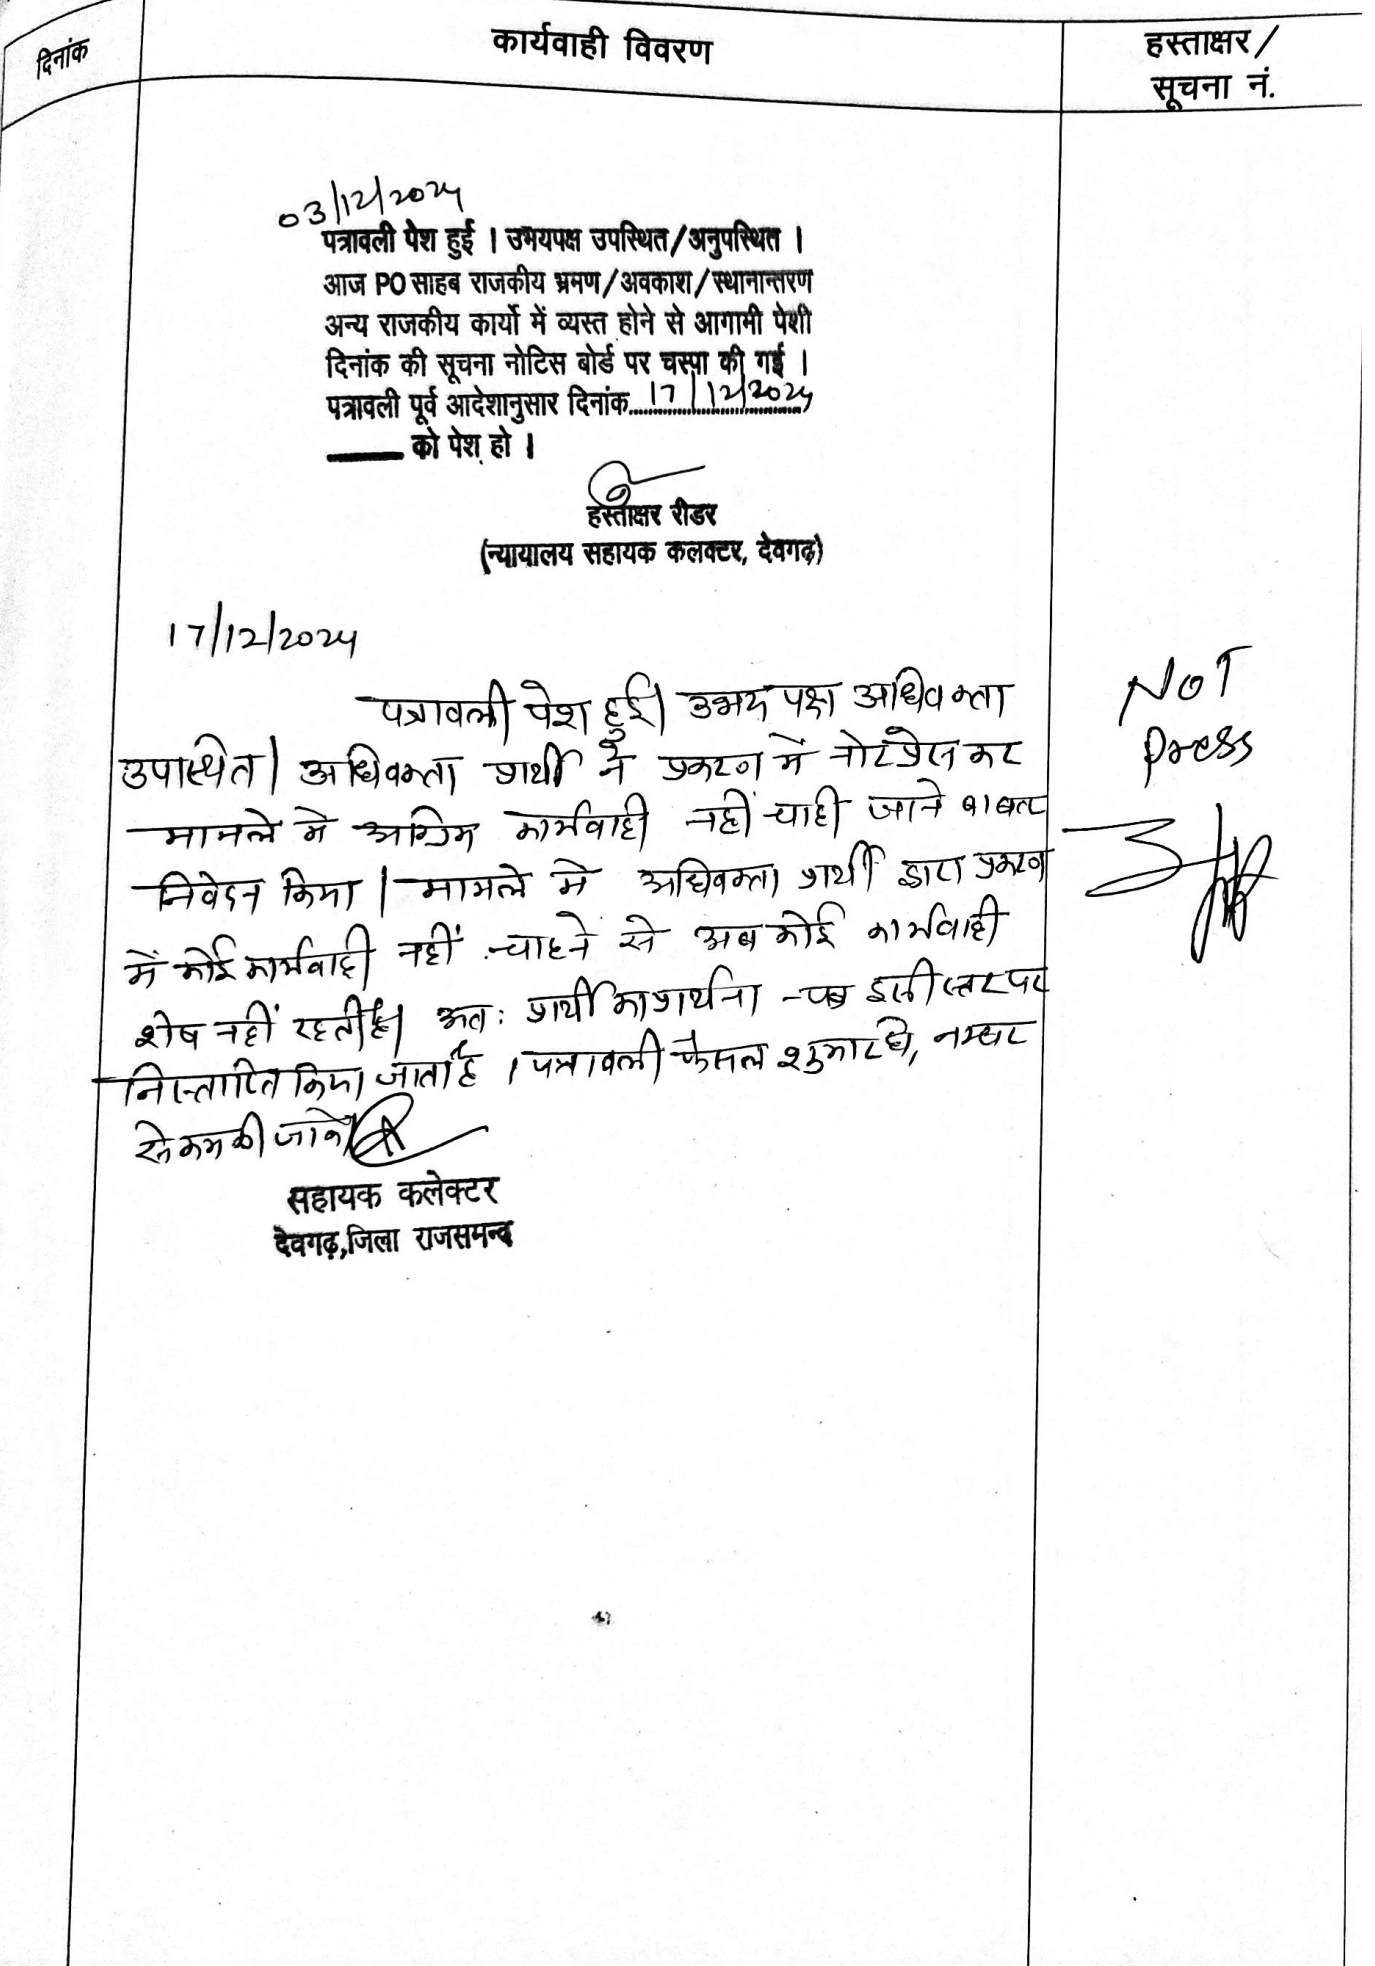 दिनांक
कार्यवाही विवरण
हस्ताक्षर/
सूचना नं.
03/12/2024
पत्रावली पेश हुई । उभयपक्ष उपस्थित/अनुपस्थित ।
आज PO साहब राजकीय भ्रमण/अवकाश/स्थानान्तरण
अन्य राजकीय कार्यो में व्यस्त होने से आगामी पेशी
दिनांक की सूचना नोटिस बोर्ड पर चस्पा की गई ।
पत्रावली पूर्व आदेशानुसार दिनांक 17/12/2024
को पेश हो ।
हस्ताक्षर रीडर
(न्यायालय सहायक कलक्टर, देवगढ़)
17/12/2024
पत्रावली पेश हुई। उभय पक्ष अधिवक्ता
उपास्थित। अधिवक्ता प्रार्थी ने प्रकरण में नोटप्रेस कर
मामले मे अग्रिम कार्यवाही नहीं चाही जाने बाबत
निवेदन किया। मामले मे अधिवक्ता प्रार्थी द्वारा प्रकरण
में कोई कार्यवाही नहीं चाहने से अब कोई कार्यवाही
शेष नहीं रहती है। अतः प्रार्थी का प्रार्थना-पत्र इसी स्तर पर
निस्तारित किया जाता है । पत्रावली फैसल शुमार हो, नम्बर
से कम की जावे।
सहायक कलेक्टर
देवगढ़,जिला राजसमन्द
NOT
Press